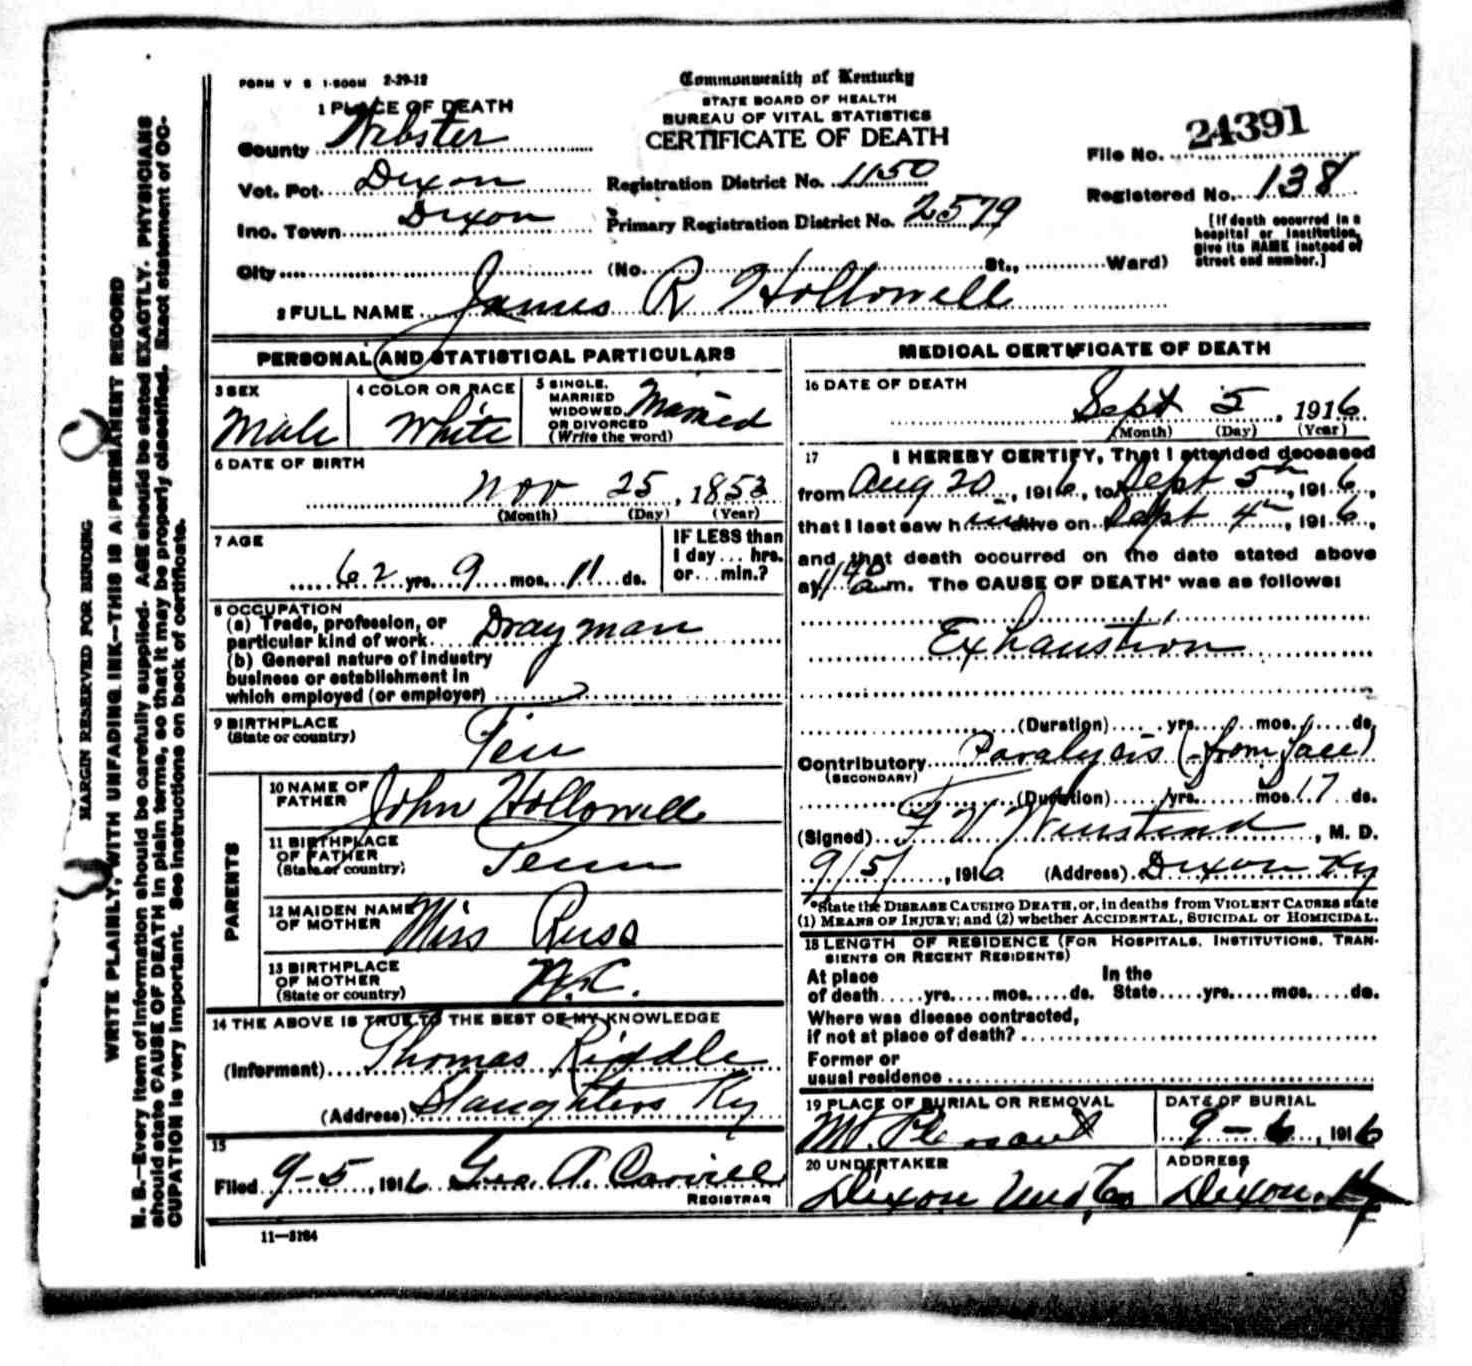 FORM V S 1-500M 2-29-12
Commonwealth of Kentucky
STATE BOARD OF HEALTH
BUREAU OF VITAL STATISTICS
CERTIFICATE OF DEATH
1 PLACE OF DEATH
County Webster
Vot. Pct. Dixon
Inc. Town Dixon
City (No. St., Ward)
Registration District No. 1150
Primary Registration District No. 2579
File No. 24391
Registered No. 138
[If death occurred in a
hospital or institution,
give its NAME instead of
street and number.]
2 FULL NAME James R Hollowell
PERSONAL AND STATISTICAL PARTICULARS
3 SEX
Male
4 COLOR OR RACE
White
5 SINGLE,
MARRIED
WIDOWED
OR DIVORCED
(Write the word)
Married
6 DATE OF BIRTH
Nov 25, 1853
(Month) (Day) (Year)
7 AGE
62 yrs. 9 mos. 11 ds.
IF LESS than
1 day ... hrs.
or ... min.?
8 OCCUPATION
(a) Trade, profession, or
particular kind of work Drayman
(b) General nature of industry
business or establishment in
which employed (or employer)
9 BIRTHPLACE
(State or country)
Ten
PARENTS
10 NAME OF
FATHER
John Hollowell
11 BIRTHPLACE
OF FATHER
(State or country)
Tenn
12 MAIDEN NAME
OF MOTHER
Miss Russ
13 BIRTHPLACE
OF MOTHER
(State or country)
N.C.
14 THE ABOVE IS TRUE TO THE BEST OF MY KNOWLEDGE
(Informant) Thomas Riddle
(Address) Slaughters Ky
15
Filed 9-5, 1916 Geo. A.
REGISTRAR
11-3184
MEDICAL CERTIFICATE OF DEATH
16 DATE OF DEATH
Sept 5, 1916
(Month) (Day) (Year)
17 I HEREBY CERTIFY, That I attended deceased
from Aug 20, 1916, to Sept 5th, 1916,
that I last saw him alive on Sept 4th, 1916,
and that death occurred on the date stated above
at 1140 am. The CAUSE OF DEATH* was as follows:
Exhaustion
(Duration) yrs. mos. ds.
Contributory Paralysis (from face)
(SECONDARY)
(Duration) yrs. mos. 17 ds.
(Signed) F V Winstead, M. D.
9/5/, 1916 (Address) Dixon Ky
*State the DISEASE CAUSING DEATH, or, in deaths from VIOLENT CAUSES state
(1) MEANS OF INJURY; and (2) whether ACCIDENTAL, SUICIDAL or HOMICIDAL.
18 LENGTH OF RESIDENCE (FOR HOSPITALS, INSTITUTIONS, TRAN-
SIENTS OR RECENT RESIDENTS)
At place In the
of death yrs. mos. ds. State yrs. mos. ds.
Where was disease contracted,
if not at place of death?
Former or
usual residence
19 PLACE OF BURIAL OR REMOVAL
Mt. Plesant
DATE OF BURIAL
9-6, 1916
20 UNDERTAKER
Dixon Und, Co
ADDRESS
Dixon, Ky
MARGIN RESERVED FOR BINDING
WRITE PLAINLY, WITH UNFADING INK—THIS IS A PERMANENT RECORD
N. B.—Every item of information should be carefully supplied. AGE should be stated EXACTLY. PHYSICIANS
should state CAUSE OF DEATH in plain terms, so that it may be properly classified. Exact statement of OC-
CUPATION is very important. See instructions on back of certificate.